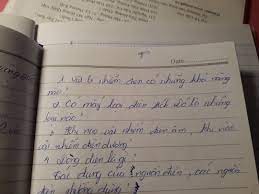 Date
1. Vật bị nhiễm điện có những khả năng
nào?
2. Có mấy loại điện tích đó là những
loại nào?
3. Khi nào vật nhiễm điện âm, khi nào
vật nhiễm điện dương?
4. Dòng điện là gì?
Tác dụng của nguồn điện, các nguồn
điện thường dùng?